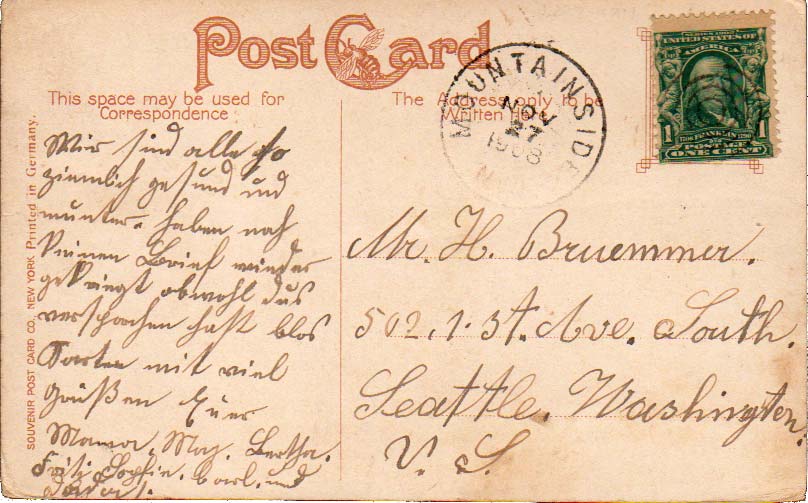 Post Card
This space may be used for
Correspondence
The Address only to be
Written Here
MOUNTAINSIDE
NOV
27
1908
SERIES 1902
UNITED STATES OF AMERICA
1 1706 FRANKLIN 1790 1
POSTAGE
ONE CENT
SOUVENIR POST CARD CO., NEW YORK Printed in Germany.
Wir sind alle so
ziemlich gesund und
munter. haben noch
keinen Brief wieder
gekriegt obwohl du's
versprochen hast blos
Karten mit viel
Grüßen Euer
Mama, May, Bertha.
Fritz, Sophie. Carl. und
Mr. H. Bruemmer.
502, 1. St. Ave. South.
Seattle. Washington.
U. S.